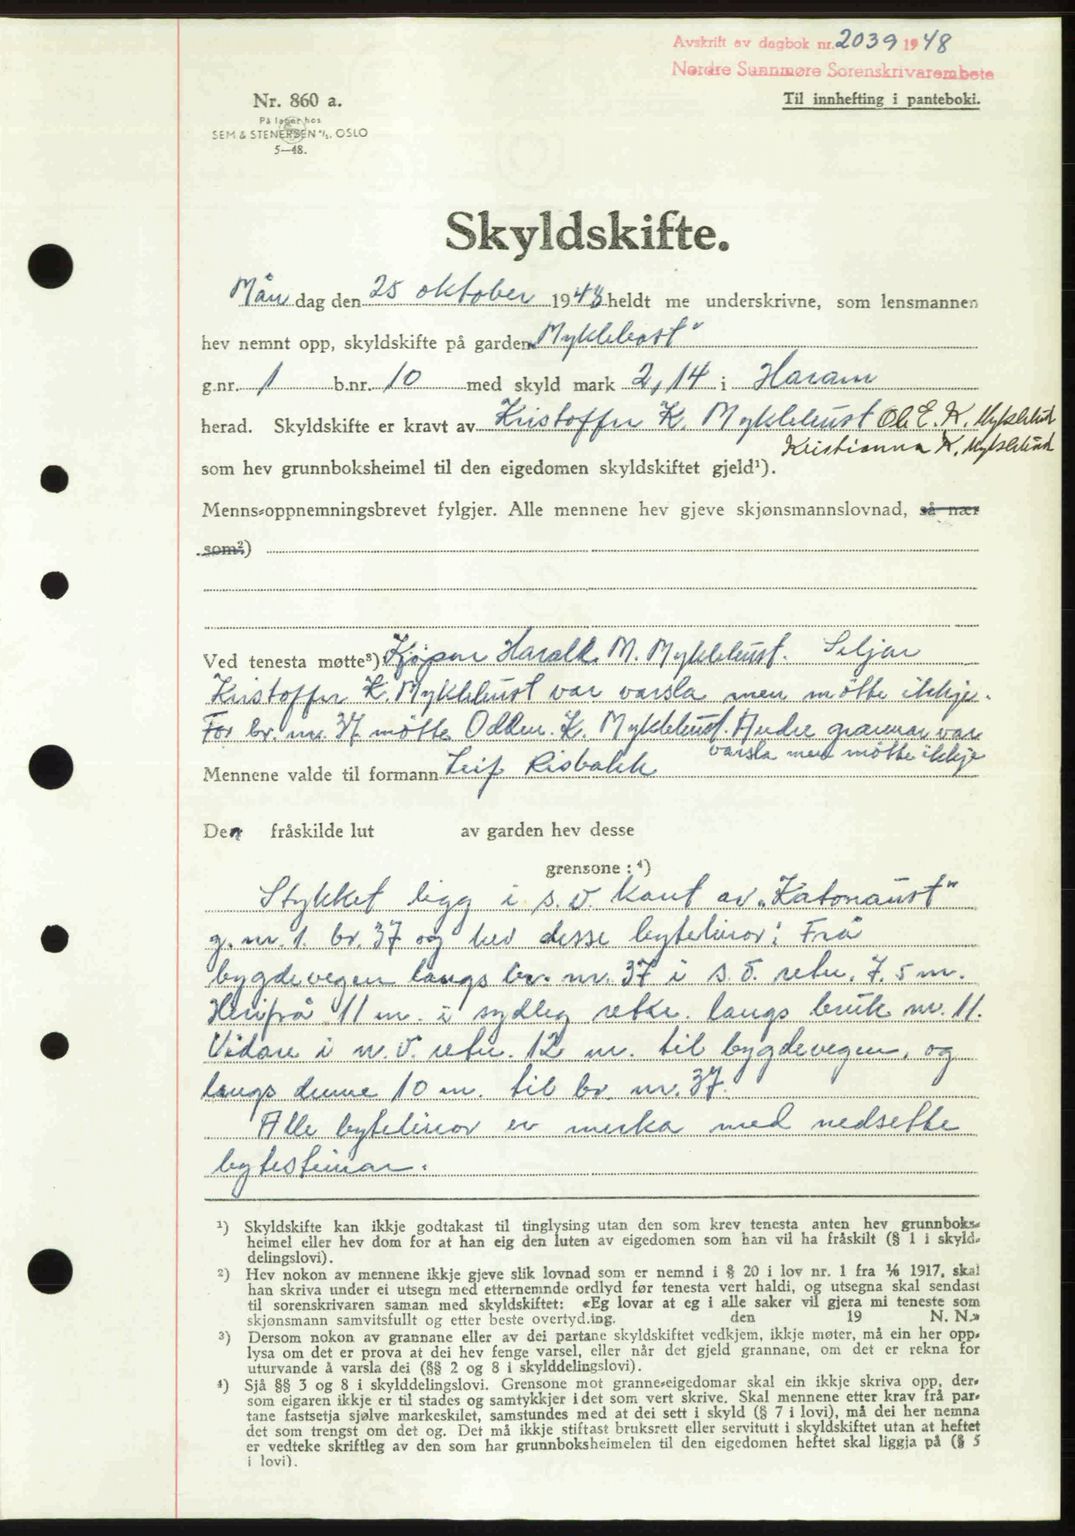 Avskrift av dagbok nr. 2039 1948
Nordre Sunnmøre Sorenskrivarembete
Til innhefting i panteboki.
Nr. 860 a.
På lager hos
SEM & STENERSEN A/S. OSLO
5—48.
Skyldskifte.
Mån dag den 25 oktober 1948 heldt me underskrivne, som lensmannen
hev nemnt opp, skyldskifte på garden „Myklebost"
g.nr. 1 b.nr. 10 med skyld mark 2,14 i Haram
herad. Skyldskifte er kravt av Kristoffer K. Myklebust Ole E. K. Myklebust
Kristianna K. Myklebust
som hev grunnboksheimel til den eigedomen skyldskiftet gjeld¹).
Menns-oppnemningsbrevet fylgjer. Alle mennene hev gjeve skjønsmannslovnad, så nær
som²)
Ved tenesta møtte³) Kjöpar Harald M. Myklebust. Seljar
Kristoffer K. Myklebust var varsla men mötte ikkje.
For br. nr. 37 mötte Oddm. K. Myklebust. Andre grannar var
varsla men mötte ikkje
Mennene valde til formann Leif Risbakk
Den fråskilde lut av garden hev desse
grensone : ⁴)
Stykket ligg i s.v. kant av „Katonaust"
g. nr. 1. br. 37 og hev desse bytelinor: Frå
bygdevegen langs br. nr. 37 i s.ö. retn. 7.5 m.
Herifrå 11 m. i sydleg retn. langs bruk nr. 11.
Vidare i n.v. retn. 12 m. til bygdevegen, og
langs denne 10 m. til br. nr. 37.
Alle bytelinor er merka med nedsette
bytesteinar.
¹) Skyldskifte kan ikkje godtakast til tinglysing utan den som krev tenesta anten hev grunnboks-
heimel eller hev dom for at han eig den luten av eigedomen som han vil ha fråskilt (§ 1 i skyld-
delingslovi).
²) Hev nokon av mennene ikkje gjeve slik lovnad som er nemnd i § 20 i lov nr. 1 fra ⅙ 1917, skal
han skriva under ei utsegn med etternemnde ordlyd før tenesta vert haldi, og utsegna skal sendast
til sorenskrivaren saman med skyldskiftet: «Eg lovar at eg i alle saker vil gjera mi teneste som
skjønsmann samvitsfullt og etter beste overtyding. den 19 N. N.»
³) Dersom nokon av grannane eller av dei partane skyldskiftet vedkjem, ikkje møter, må ein her opp-
lysa om det er prova at dei hev fenge varsel, eller når det gjeld grannane, om det er rekna for
uturvande å varsla dei (§§ 2 og 8 i skylddelingslovi).
⁴) Sjå §§ 3 og 8 i skylddelingslovi. Grensone mot granne-eigedomar skal ein ikkje skriva opp, der-
som eigaren ikkje er til stades og samtykkjer i det som vert skrive. Skal mennene etter krav frå par-
tane fastsetja sjølve markeskilet, samstundes med at dei sett i skyld (§ 7 i lovi), må dei her nemna
det som trengst om det og. Det må ikkje stiftast bruksrett eller servitutt i skyldskiftet utan at heftet
er vedteke skriftleg av den som har grunnboksheimelen til den eigedomen heftet skal liggja på (§ 5
i lovi).